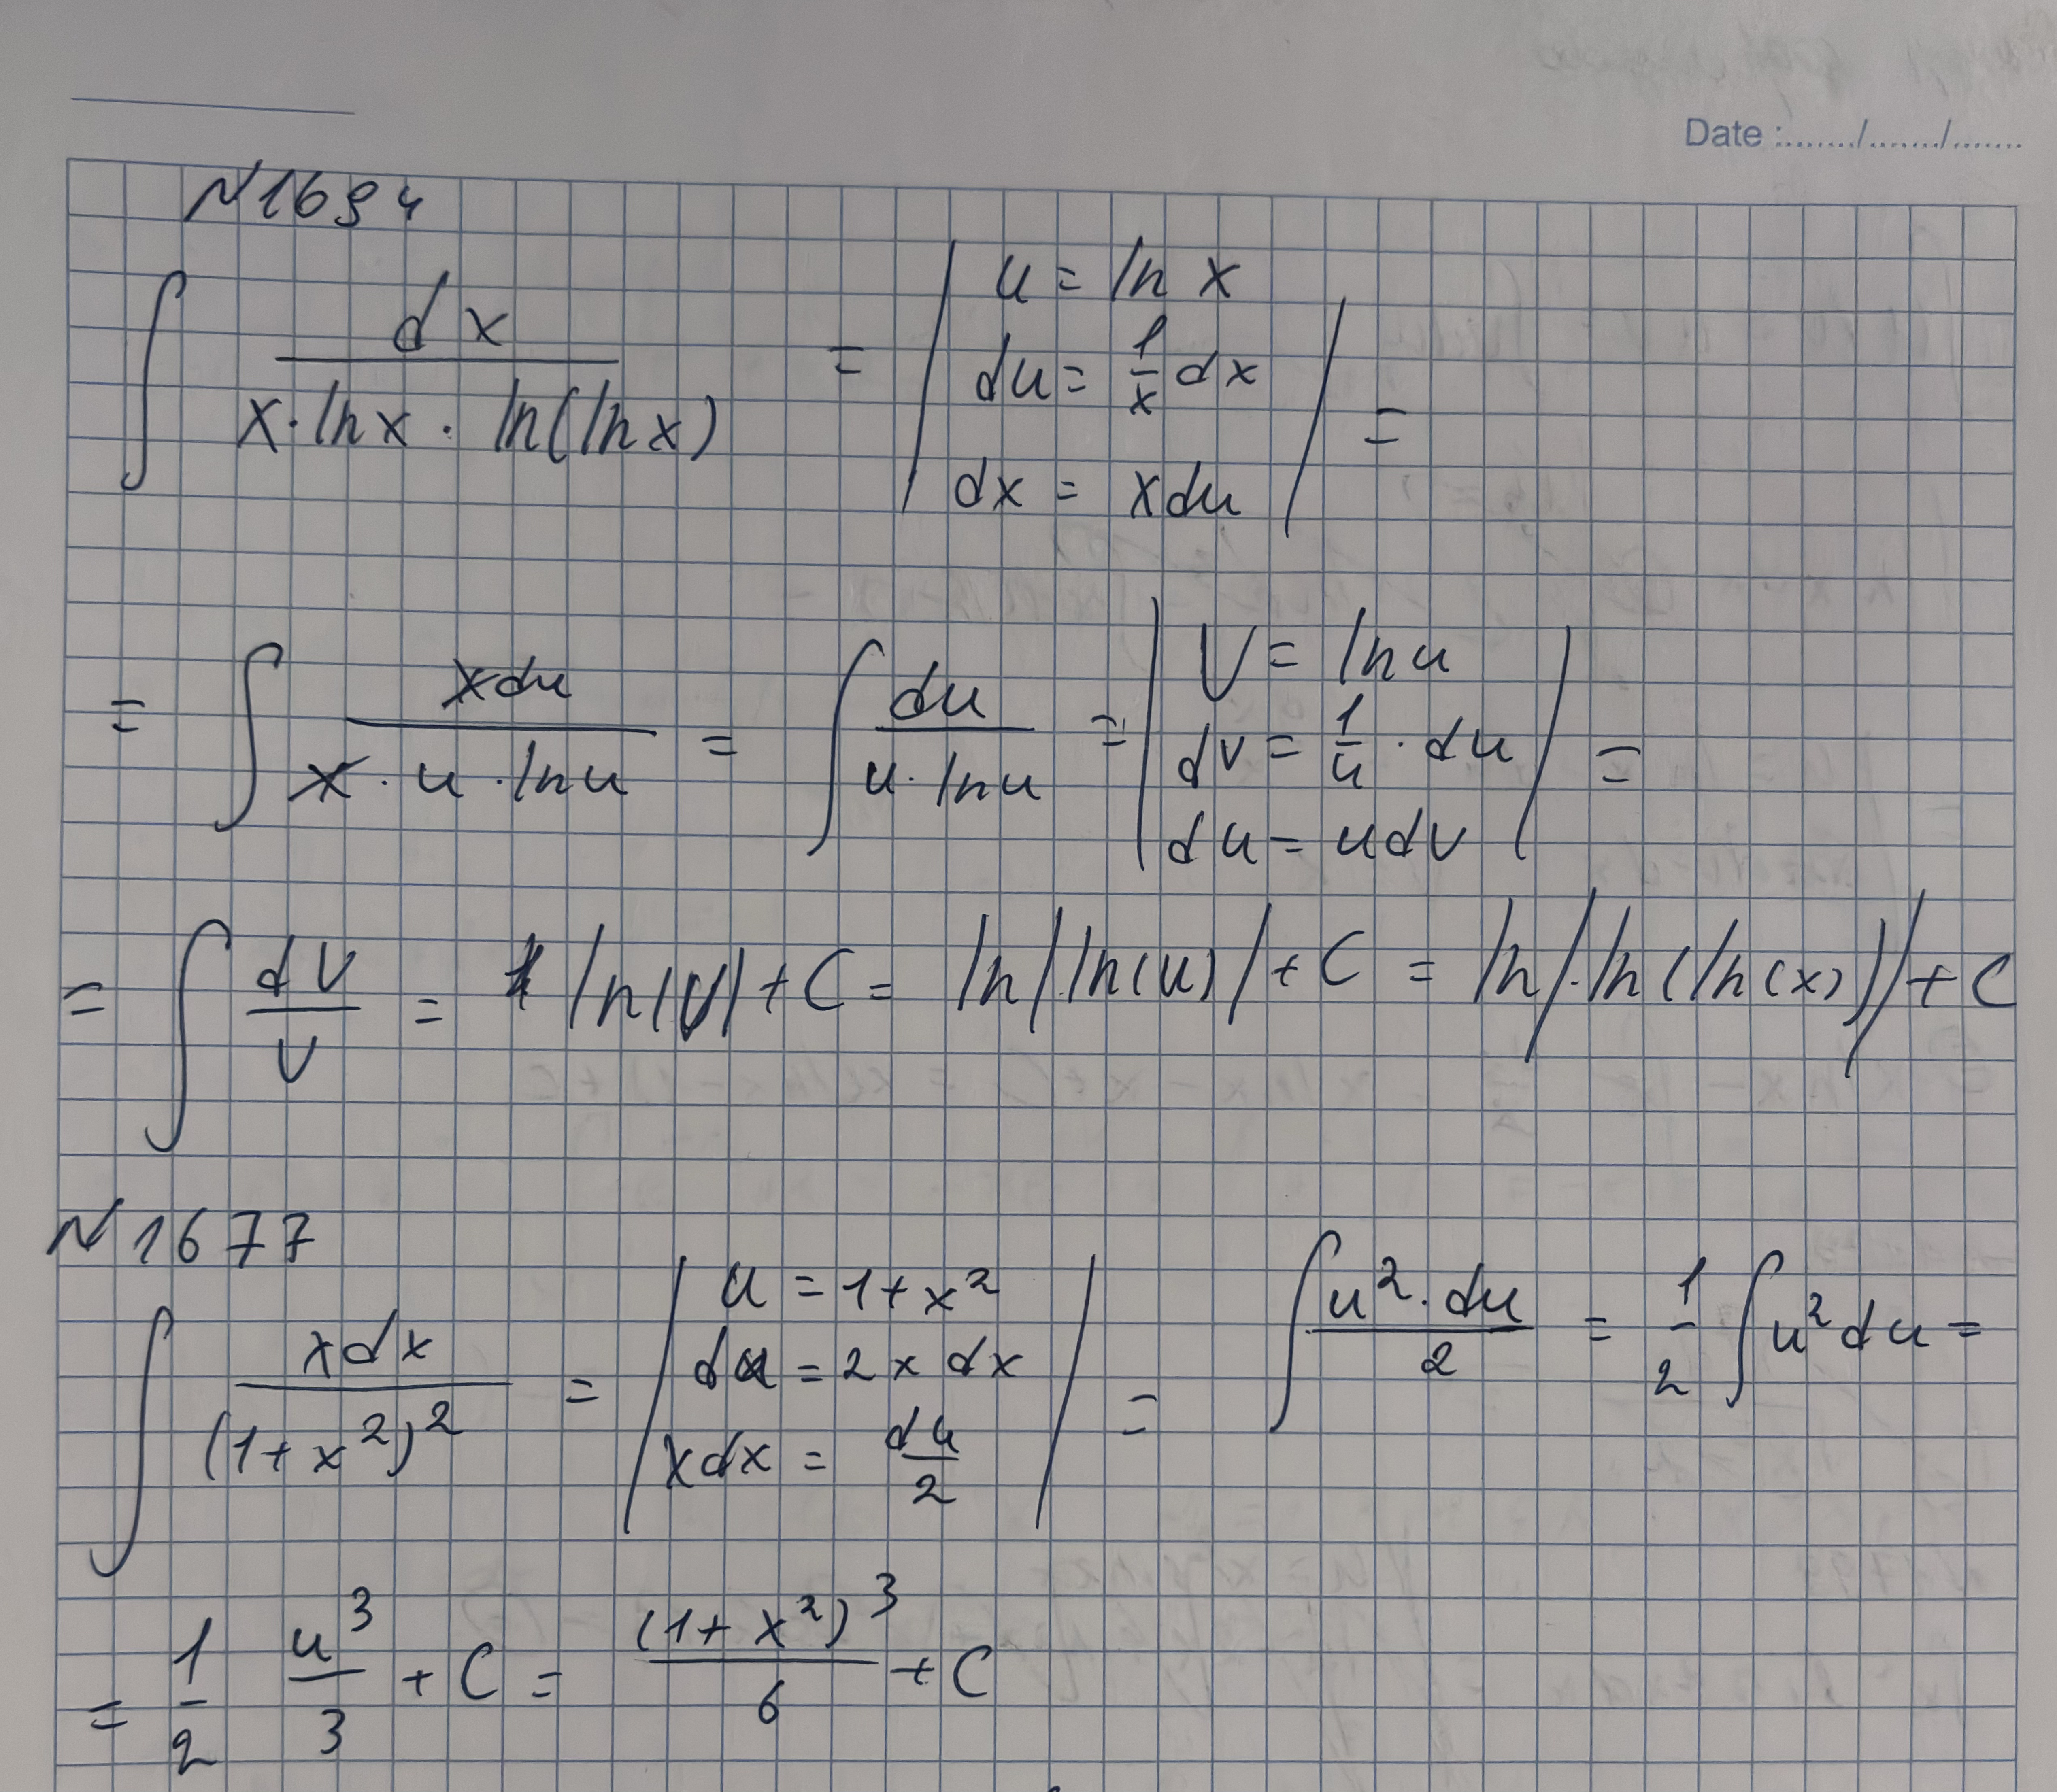 Date :....../....../......
N1694
∫ dx / (x·lnx · ln(lnx)) = | u = ln x
du = 1/x dx
dx = xdu | =
= ∫ xdu / (x · u · lnu) = ∫ du / (u · lnu) = | V = lnu
dv = 1/u · du
du = udv | =
= ∫ dV / V = ln|V| + C = ln|ln(u)| + C = ln|ln(ln(x))| + C
N1677
∫ xdx / (1+x²)² = | u = 1+x²
du = 2x dx
xdx = du/2 | = ∫ u²·du / 2 = 1/2 ∫ u² du =
= 1/2 u³/3 + C = (1+x²)³ / 6 + C